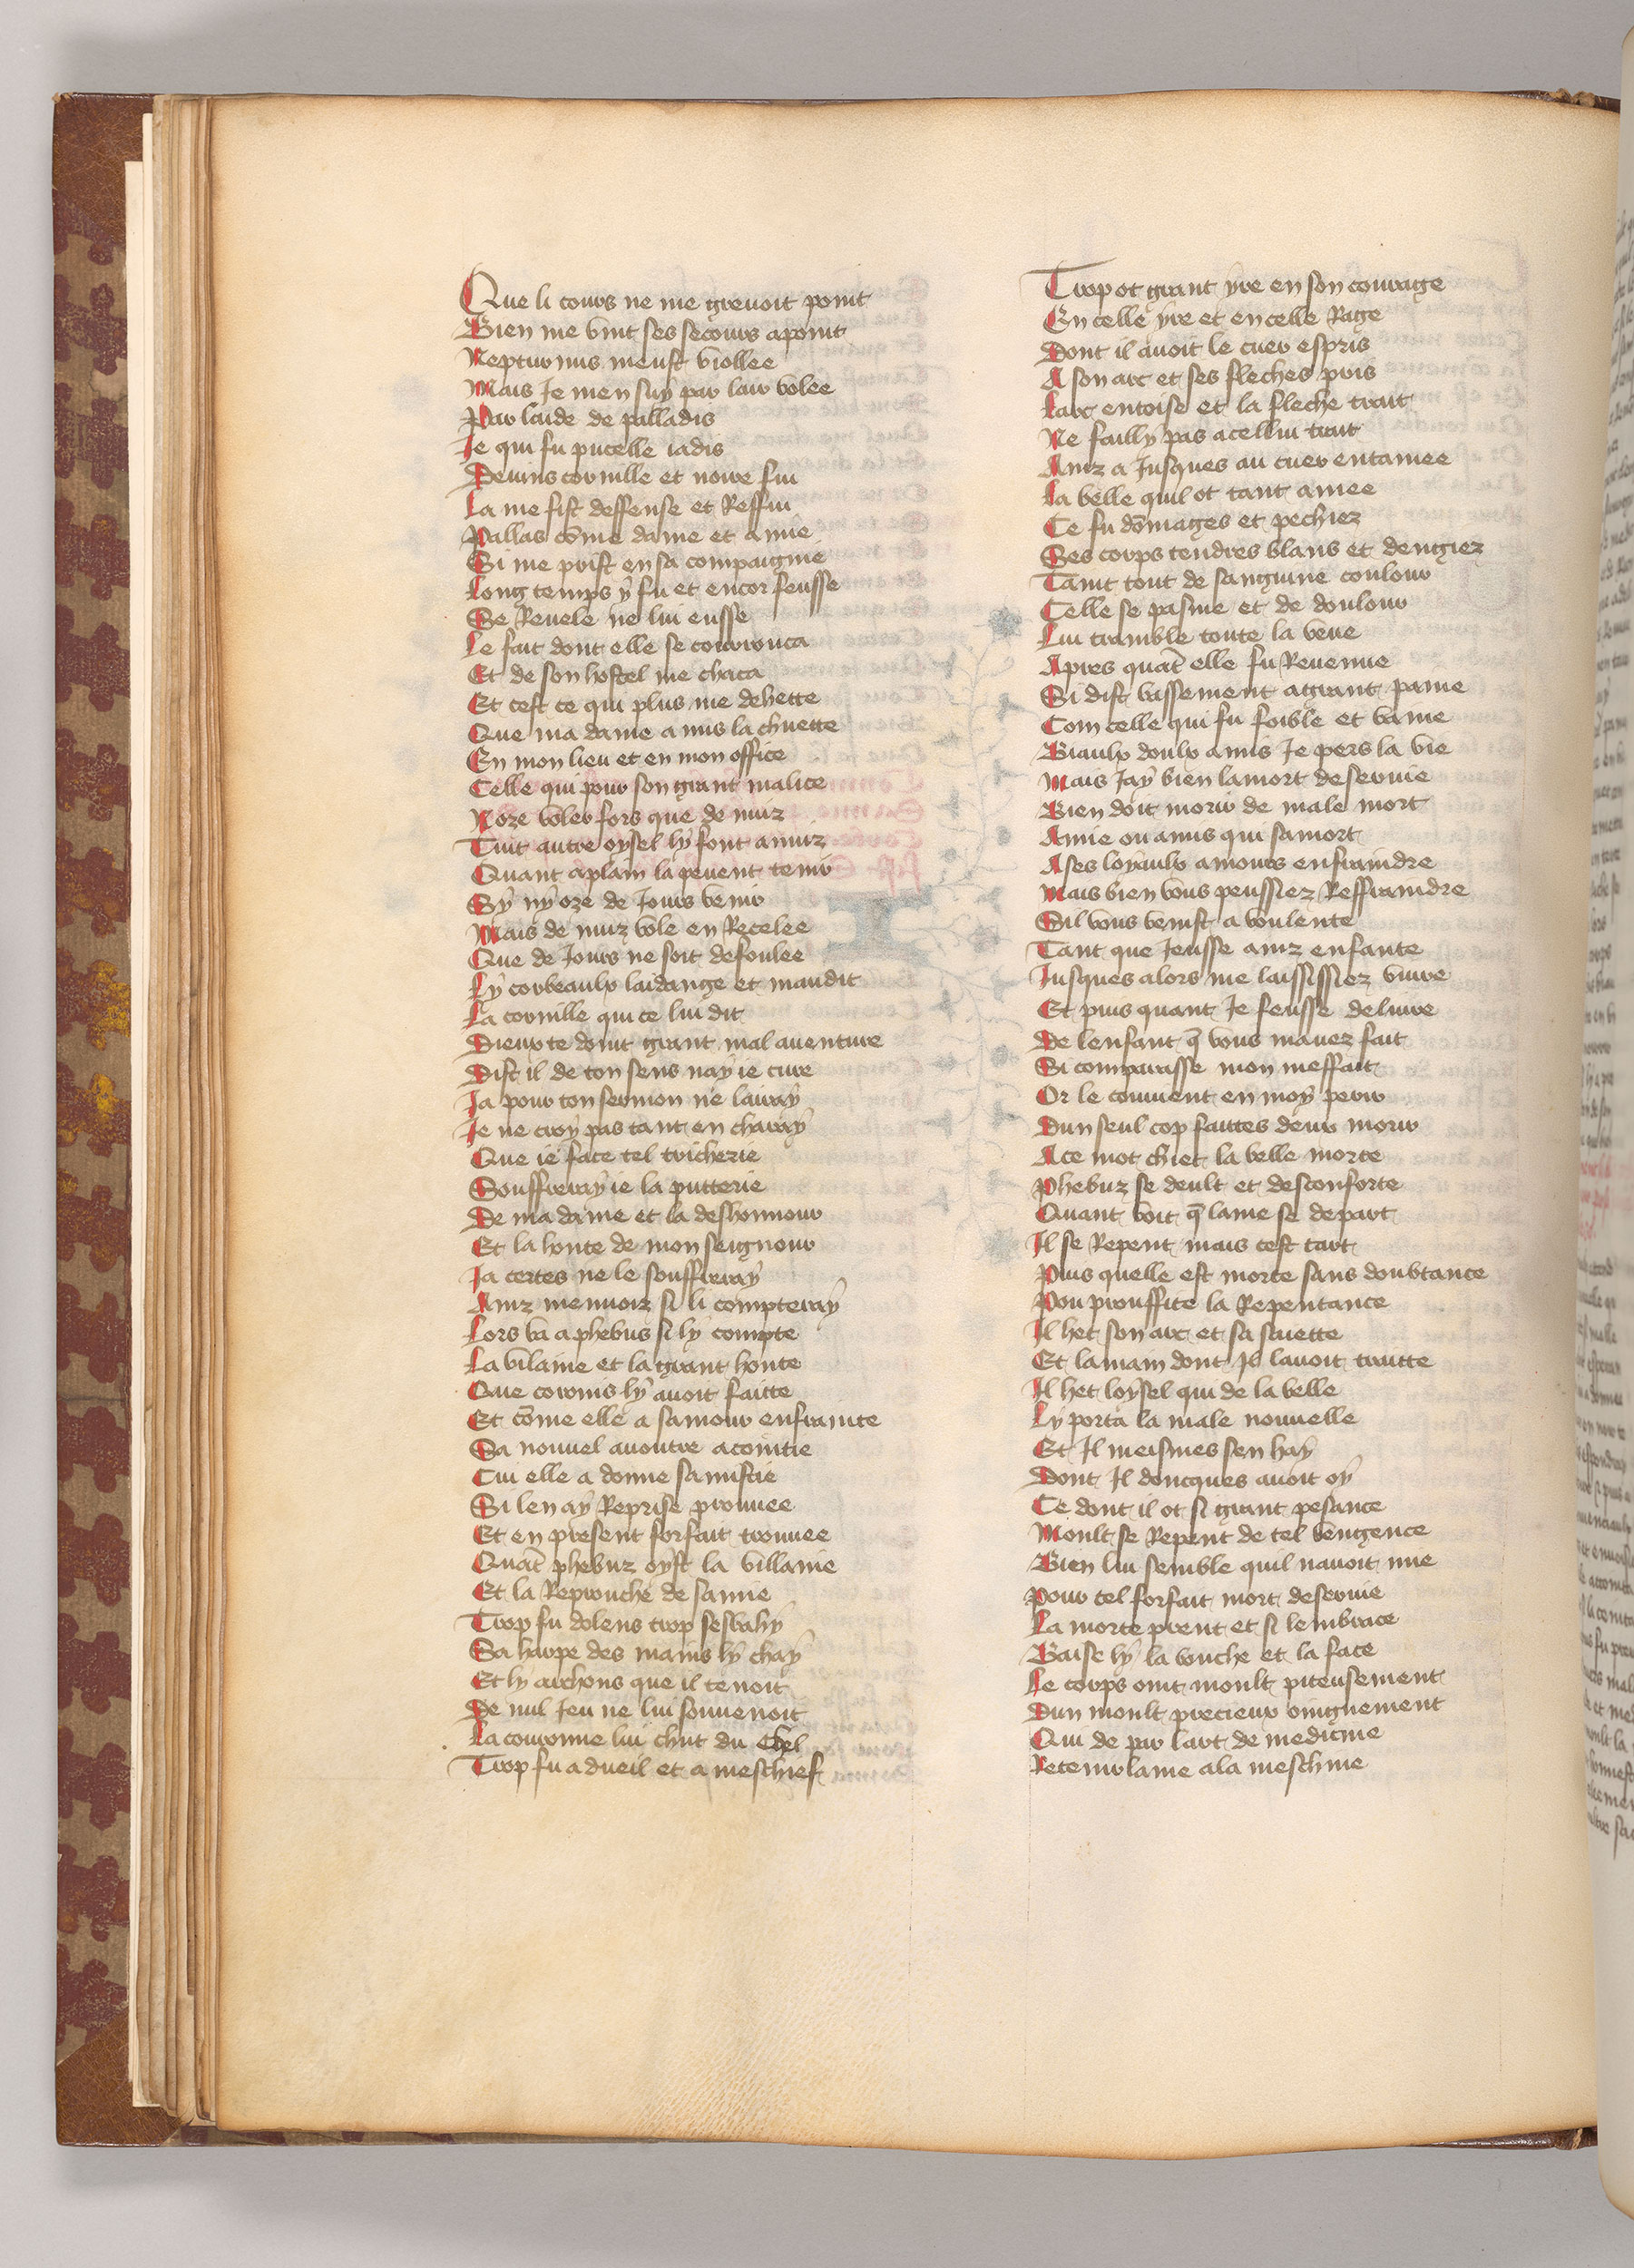 Que li cours ne me grevoit point
Bien me vint ses secours apoint
Neptunus meust viollee
Mais Je men fuy par lair volee
Par laide de palladis
Je qui fu pucelle iadis
Devins cornille et noire fui
La me fist deffense et Reffui
Pallas cõme dame et amie
Si me prist en sa compaignie
Long temps y fu et encor feusse
Se Revele ne lui eusse
Le fait dont elle se courrouca
Et de son hostel me chaca
Et cest ce qui plus me dehette
Que ma dame a mis la chuette
En mon lieu et en mon office
Celle qui pour son grant malice
Noze voler fors que de nuiz
Tuit autre oysel ly font anuiz
Quant aplain la pevent tenir
Sy ny oze de Jours venir
Mais de nuiz vole en Recelee
Que de Jours ne soit defoulee
Ly corbeaulx laidange et maudit
La cornille qui ce lui dit
Dieux te doint grant mal aventure
Dist il de ton sens nay ie cure
Ja pour ton sermon ne lairay
Je ne croy pas tant en charay
Que ie face tel tricherie
Souffreray ie la putterie
De ma dame et la deshonnour
Et la honte de mon seignour
Ja certes ne le souffreray
Ainz menvoiz si li compteray
Lors va a phebus si ly compte
La vilanie et la grant honte
Que coronis ly avoit faitte
Et cõme elle a samour enfrainte
Sa nouvel avoutre acointie
Cui elle a donne samistie
Si len ay Reprise prouvee
Et en present forfait trouvee
Quãt phebuz oyst la villanie
Et la Reprouche de samie
Trop fu dolens trop sesbahy
Sa harpe des mains ly chay
Et ly archons que il tenoit
De nul Jeu ne lui souvenoit
La couronne lui chut du Chel
Trop fu a dueil et a meschief
Trop ot grant yre en son courage
En celle yre et en celle Rage
Dont il avoit le cuer espris
A son arc et ses fleches pris
Larc entoise et la fleche trait
Ne failly pas acellui trait
Ainz a Jusques au cuer entamee
La belle quil ot tant amee
Ce fu dõmages et pechiez
Ses corps tendres blans et deugiez
Taint tout de sanguine coulour
Celle se pasme et de doulour
Lui tramble toute la veue
Apres quãt elle fu Revenue
Si dist bassement agrant paine
Com celle qui fu foible et vaine
Biaulx doulx amis Je pers la vie
Mais Jay bien lamort deservie
Bien doit morir de male mort
Amie ou amis qui samort
A ses loyaulx amours enfraindre
Mais bien vous peussiez Reffraindre
Sil vous venist a voulente
Tant que Jeusse ainz enfante
Jusques alors me laississiez vivre
Et puis quant Je feusse delivre
De lenfant q̃ vous mavez fait
Si comparasse mon meffait
Or le convient en moy perir
Dun seul cop faittes deux morir
A ce mot chiet la belle morte
Phebuz se deult et desconforte
Quant voit q̃ lame se depart
Il se Repent mais cest tart
Puis quelle est morte sans doubtance
Pou prouffite la Repentance
Il het son arc et sa saiette
Et lamain dont Il lavoit traitte
Il het loysel qui de la belle
Ly porta la male nouvelle
Et Il meismes sen hay
Dont Il doncques avoit oy
Ce dont il ot si grant pesance
Moult se Repent de tel vengence
Bien lui semble quil navoit mie
Pour tel forfait mort deservie
La morte prent et si lembrace
Baise ly la bouche et la face
Le corps oint moult piteusement
Dun moult precieux oingnement
Qui de par lart de medicine
Retenir lame ala meschine